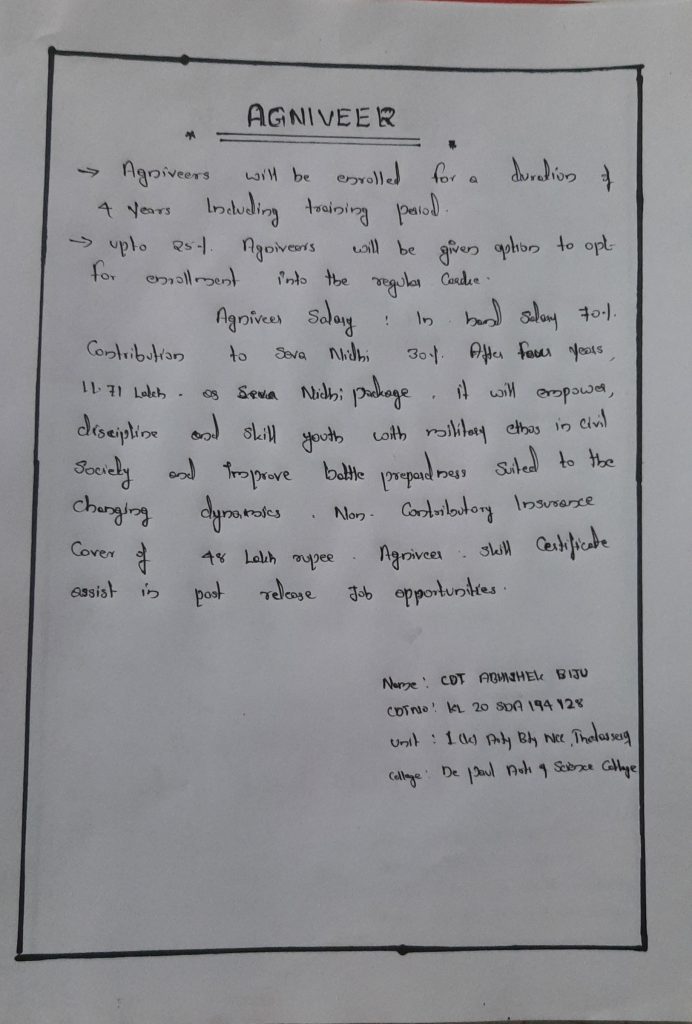 AGNIVEER
→ Agniveers will be enrolled for a duration of
4 years Including training period.
→ upto 25%. Agniveers will be given option to opt
for enrollment into the regular Cadre.
Agniveer Salary : In hand Salary 70%.
Contribution to Seva Nidhi 30%. After four years,
11.71 Lakh. as Seva Nidhi package. it will empower,
discipline and skill youth with military ethos in civil
Society and Improve battle prepardness Suited to the
changing dynamics. Non-Contributory Insurance
Cover of 48 Lakh rupee. Agniveer. skill Certificate
assist in post release Job opportunities.
Name: CDT ABHISHEK BIJU
CDT NO: KL 20 SDA 194928
Unit : 1 (K) Arty Bty NCC, Thalassery
College: De Paul Arts & Science College